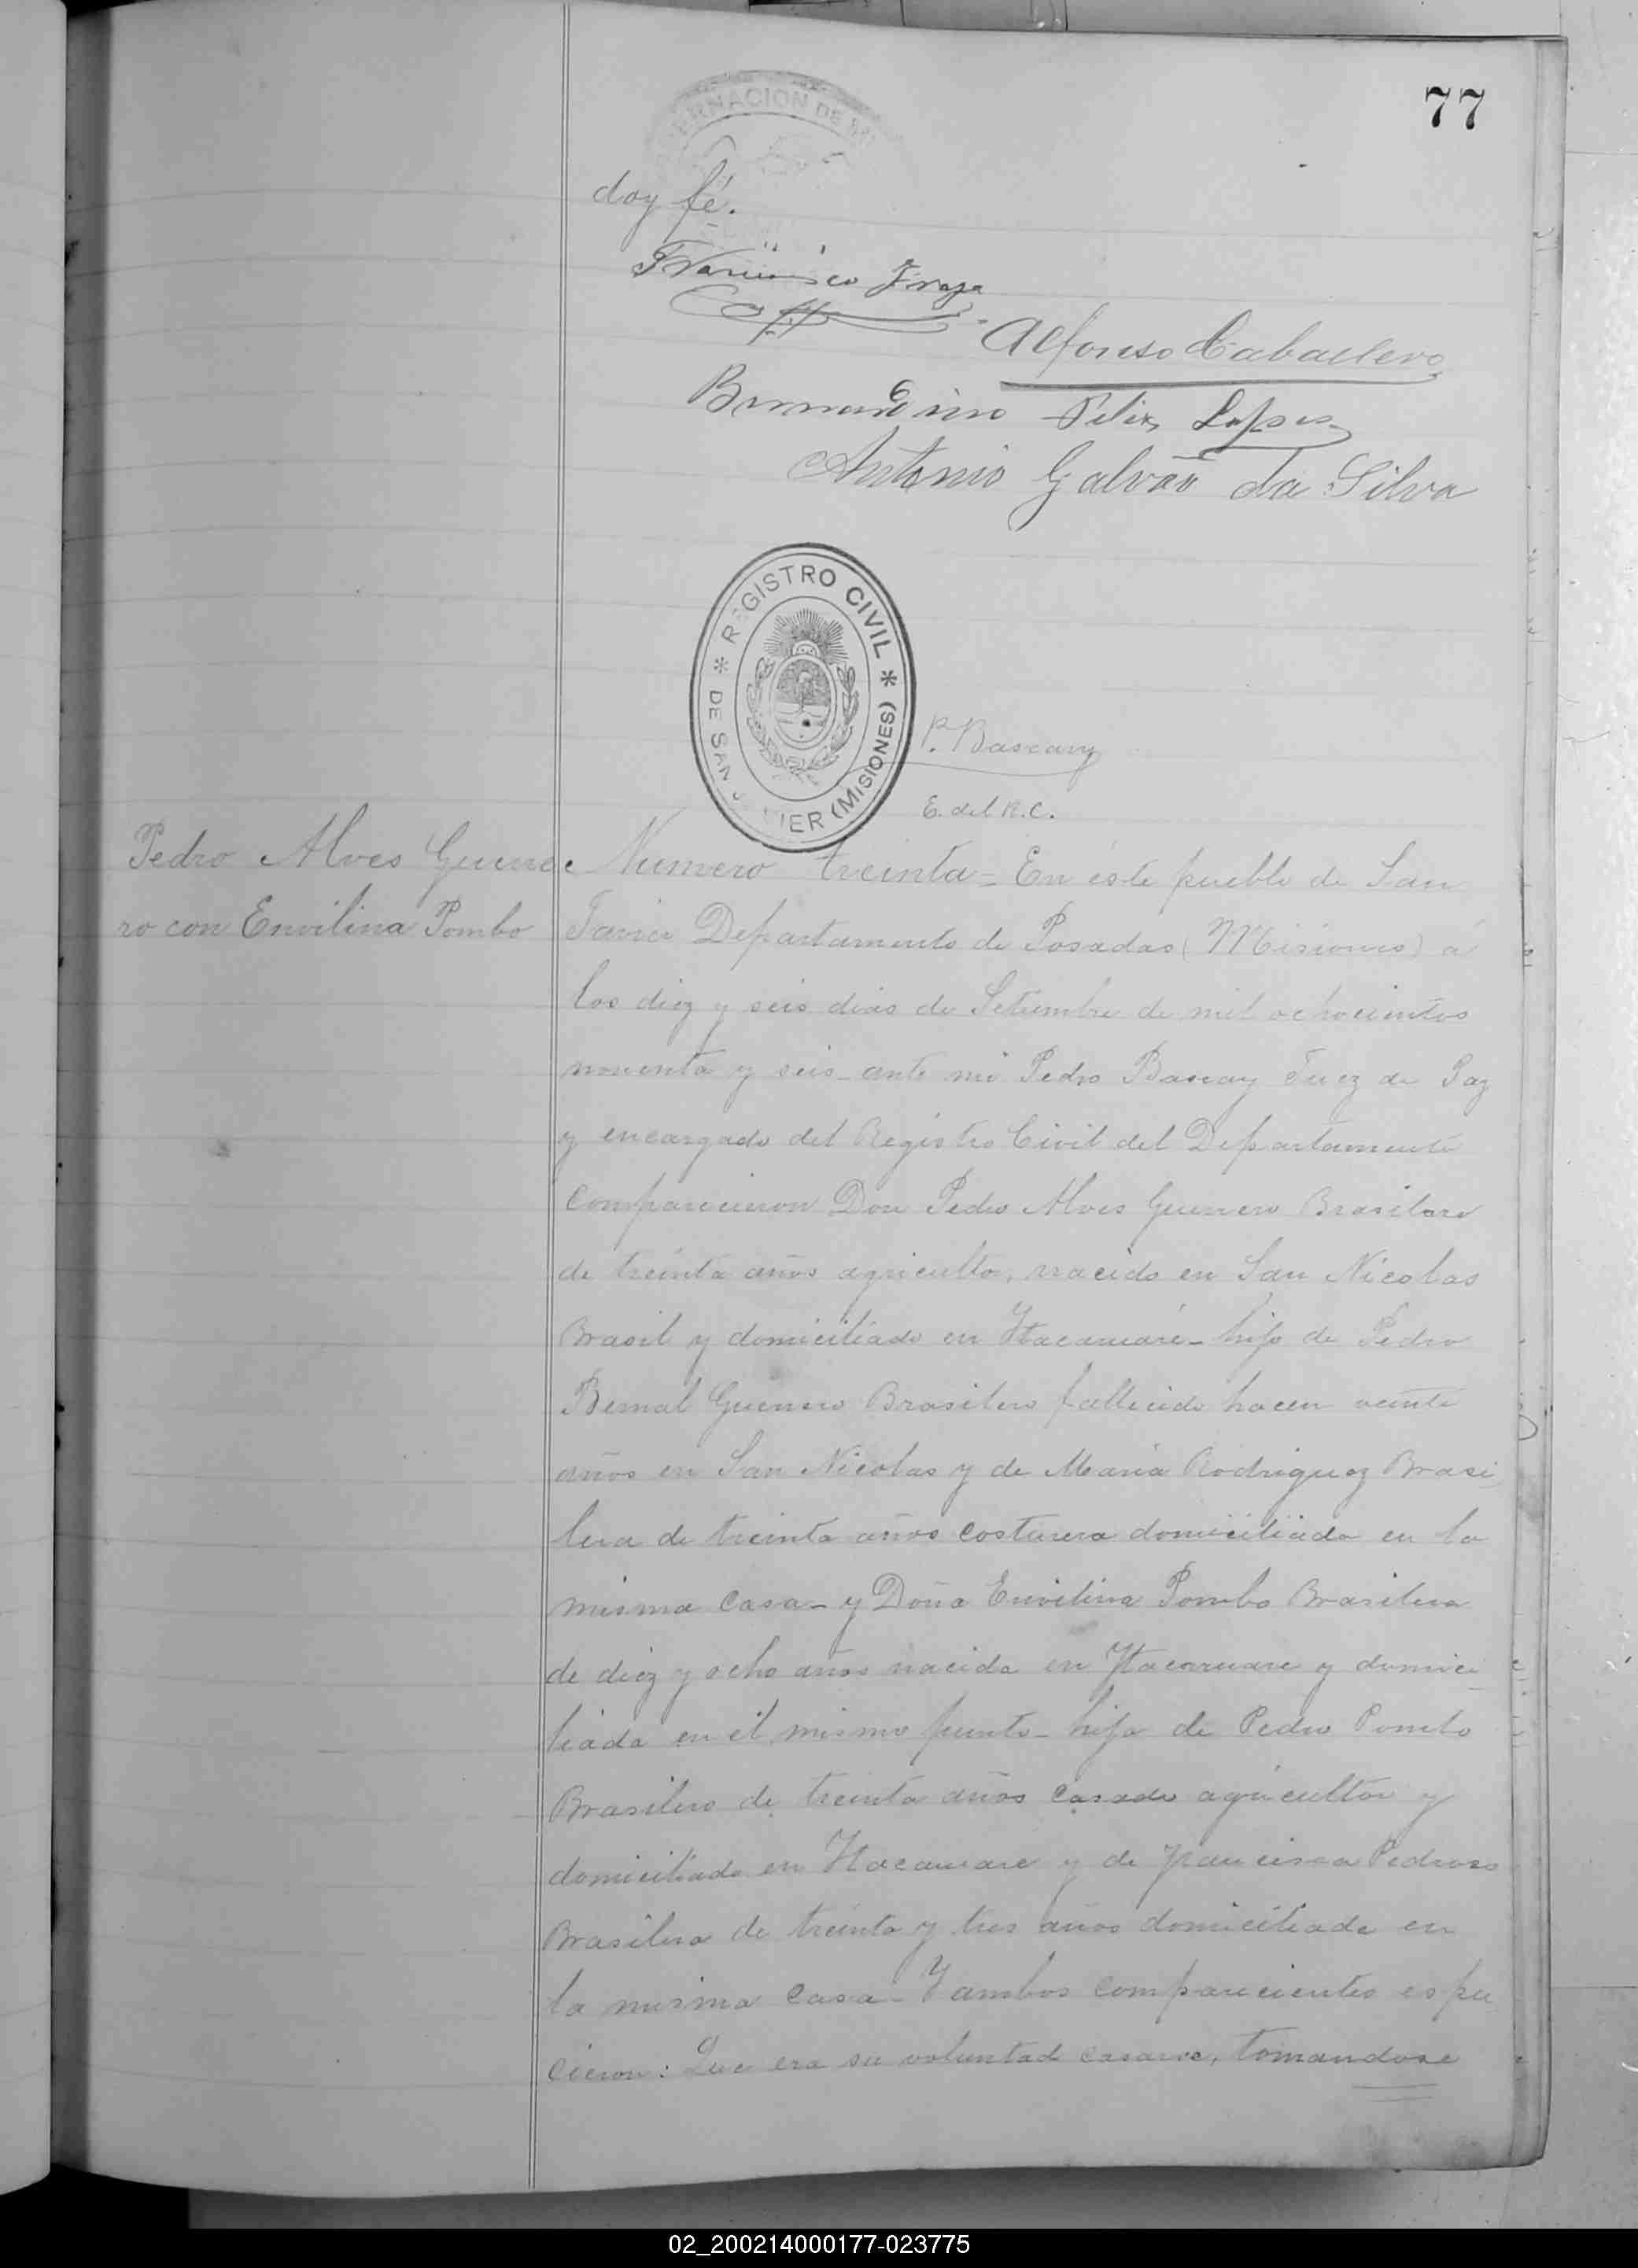 77
GOBERNACION DE MI
doy fé.
Francisco Fraga
Alfonso Caballero
Bernardino Felix Lopes
Antonio Galvão da Silva
* REGISTRO CIVIL *
DE SAN JAVIER (MISIONES)
P. Bascary
E. del R.C.
Pedro Alves Guerre
ro con Envilina Pombo
Numero treinta = En éste pueblo de San
Javier Departamento de Posadas (Misiones) á
los diez y seis dias de Setiembre de mil ochocientos
noventa y seis - ante mi Pedro Bascary Juez de Paz
y encargado del Registro Civil del Departamento
comparecieron Don Pedro Alves Guerrero Brasilero
de treinta años agricultor, nacido en San Nicolas
Brasil y domiciliado en Itacaruaré - hijo de Pedro
Bernal Guerrero Brasilero fallecido hacen veinte
años en San Nicolas y de Maria Rodriguez Brasi
lera de treinta años costurera domiciliada en la
misma casa - y Doña Envilina Pombo Brasilera
de diez y ocho años nacida en Itacaruare y domici
liada en él mismo punto - hija de Pedro Pombo
Brasilero de treinta años casado agricultor y
domiciliado en Itacaruare y de Francisca Pedroso
Brasilera de treinta y tres años domiciliada en
la misma casa - Y ambos comparecientes espu
cieron: Que era su voluntad casarse, tomandose
02_200214000177-023775